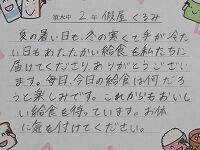 須木中 2年 假屋くるみ
夏の暑い日も、冬の寒くて手が冷た
い日もあたたかい給食を私たちに
届けてくださりありがとうござい
ます。毎日、今日の給食は何だろ
うと楽しみです。これからもおいし
い給食を待っています。お体
に気を付けてください。